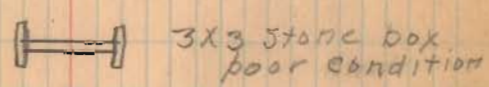 3x3 Stone box
poor condition